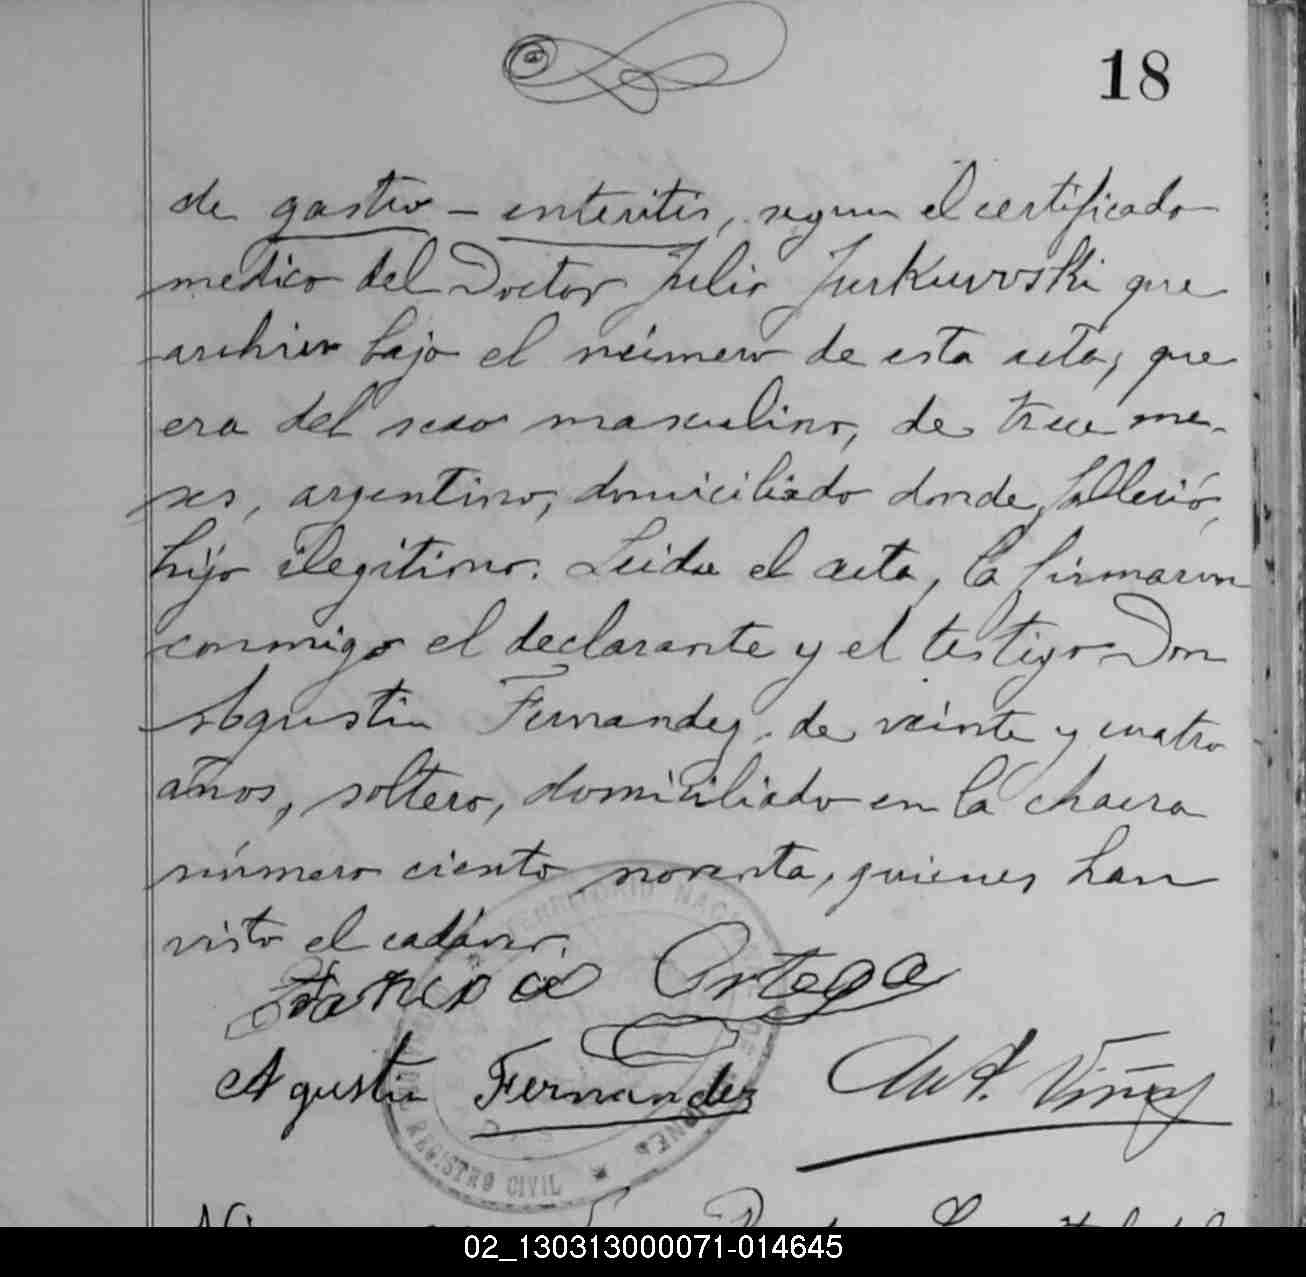 18
de gastro - enteritis, segun el certificado
medico del Doctor Julio Jurkowski que
archivo bajo el número de esta acta, que
era del sexo masculino, de trece me-
ses, argentino, domiciliado donde falleció,
hijo ilegitimo. Leida el acta, la firmaron
conmigo el declarante y el testigo Don
Agustin Fernandez, de veinte y cuatro
años, soltero, domiciliado en la chacra
número ciento noventa, quienes han
visto el cadáver.
Ortega
Agustin Fernandez
TERRITORIO NACIONAL
REGISTRO CIVIL
02_130313000071-014645